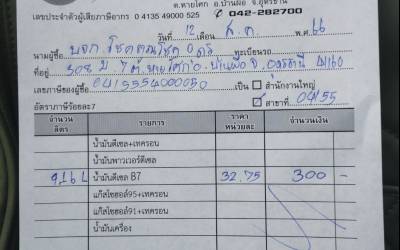 ต.หายโศก อ.บ้านผือ จ.อุดรธานี
เลขประจำตัวผู้เสียภาษีอากร 0 4135 49000 525 042-282700
วันที่ 12 เดือน ส.ค. พ.ศ. 66
นามผู้ซื้อ บจก. โชคคูณโชค อุดร ทะเบียนรถ
ที่อยู่ 308 ม 7 ต. หายโศก อ. บ้านผือ จ. อุดรธานี 41160
เลขภาษีของผู้ซื้อ เป็น สำนักงานใหญ่
อัตราภาษีร้อยละ7 สาขาที่ 04155
จำนวนลิตร รายการ ราคาหน่วยละ จำนวนเงิน
น้ำมันดีเซล+เทครอน
น้ำมันพาวเวอร์ดีเซล
9.16 L น้ำมันดีเซล B7 32.75 300 -
แก๊สโซฮอล์95+เทครอน
แก๊สโซฮอล์91+เทครอน
น้ำมันเครื่อง